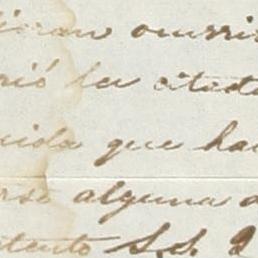 ieran ocurri
rió la citada
cida que ha
erse alguna
atento S.S. Q